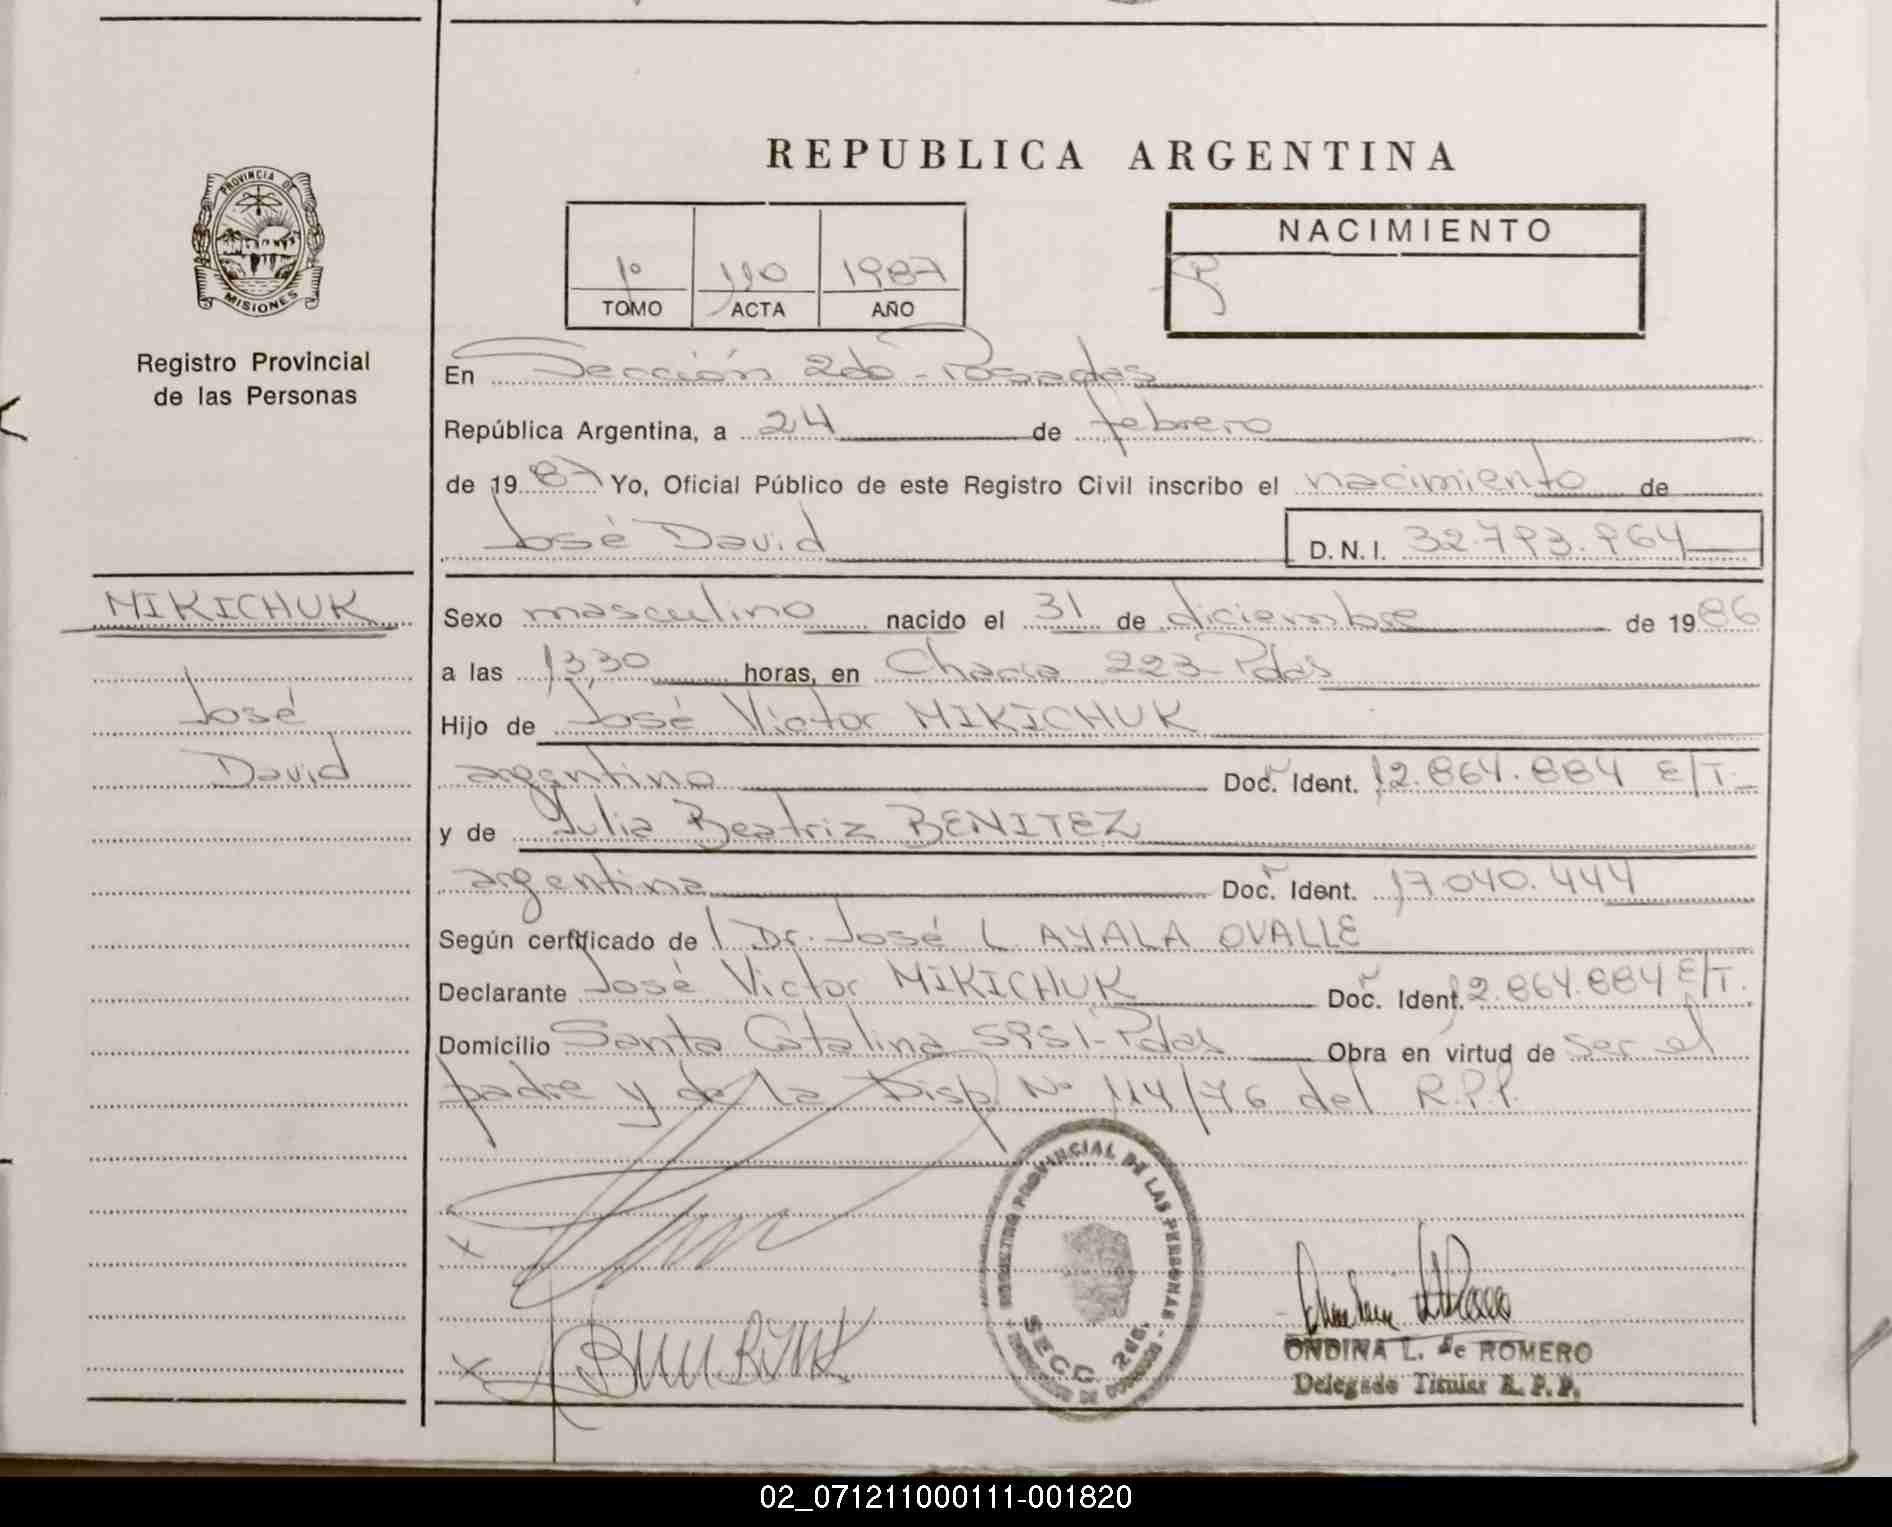 REPUBLICA ARGENTINA
PROVINCIA DE
MISIONES
Registro Provincial
de las Personas
1º 110 1987
TOMO ACTA AÑO
NACIMIENTO
En Sección 2do - Posadas
República Argentina, a 24 de febrero
de 1987 Yo, Oficial Público de este Registro Civil inscribo el nacimiento de
José David D.N.I. 32.793.964
MIKICHUK
José
David
Sexo masculino nacido el 31 de diciembre de 1986
a las 13,30 horas, en Chacra 223 - Pdas
Hijo de José Victor MIKICHUK
argentino Doc. Ident. 12.864.884 E/T.
y de Julia Beatriz BENITEZ
argentina Doc. Ident. 17.040.444
Según certificado de Dr. José L AYALA OVALLE
Declarante José Victor MIKICHUK Doc. Ident. 12.864.884 E/T.
Domicilio Santa Catalina 5951 - Pdas Obra en virtud de ser el
padre y de la Disp. Nº 114/76 del R.P.P.
REGISTRO PROVINCIAL DE LAS PERSONAS
SECC. 2da.
ONDINA L. de ROMERO
Delegado Titular R. P. P.
02_071211000111-001820